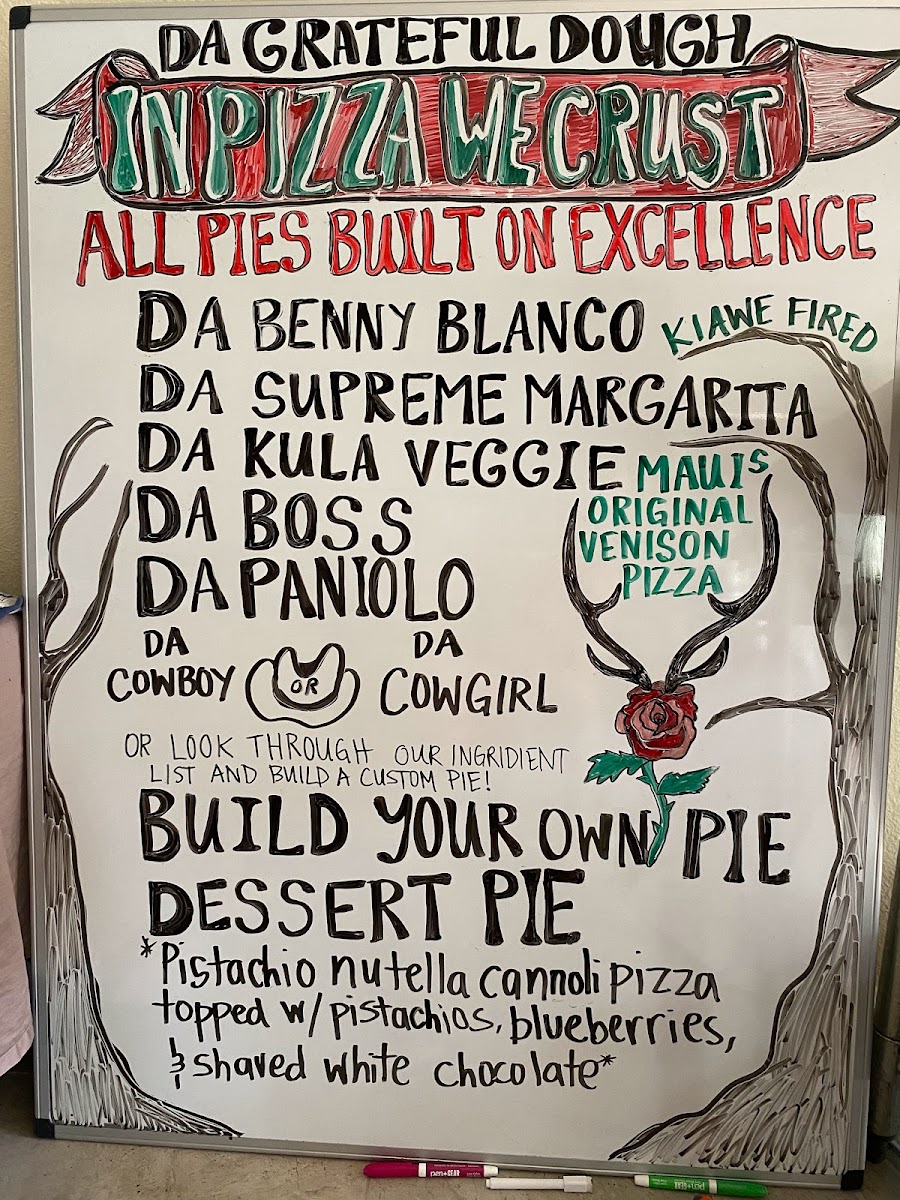 DA GRATEFUL DOUGH
IN PIZZA WE CRUST
ALL PIES BUILT ON EXCELLENCE
DA BENNY BLANCO
KIAWE FIRED
DA SUPREME MARGARITA
DA KULA VEGGIE
DA BOSS
DA PANIOLO
MAUIS
ORIGINAL
VENISON
PIZZA
DA
COWBOY
OR
DA
COWGIRL
OR LOOK THROUGH OUR INGRIDIENT
LIST AND BUILD A CUSTOM PIE!
BUILD YOUR OWN PIE
DESSERT PIE
*Pistachio nutella cannoli pizza
topped w/ pistachios, blueberries,
& shaved white chocolate*
pen+GEAR
pen+GEAR